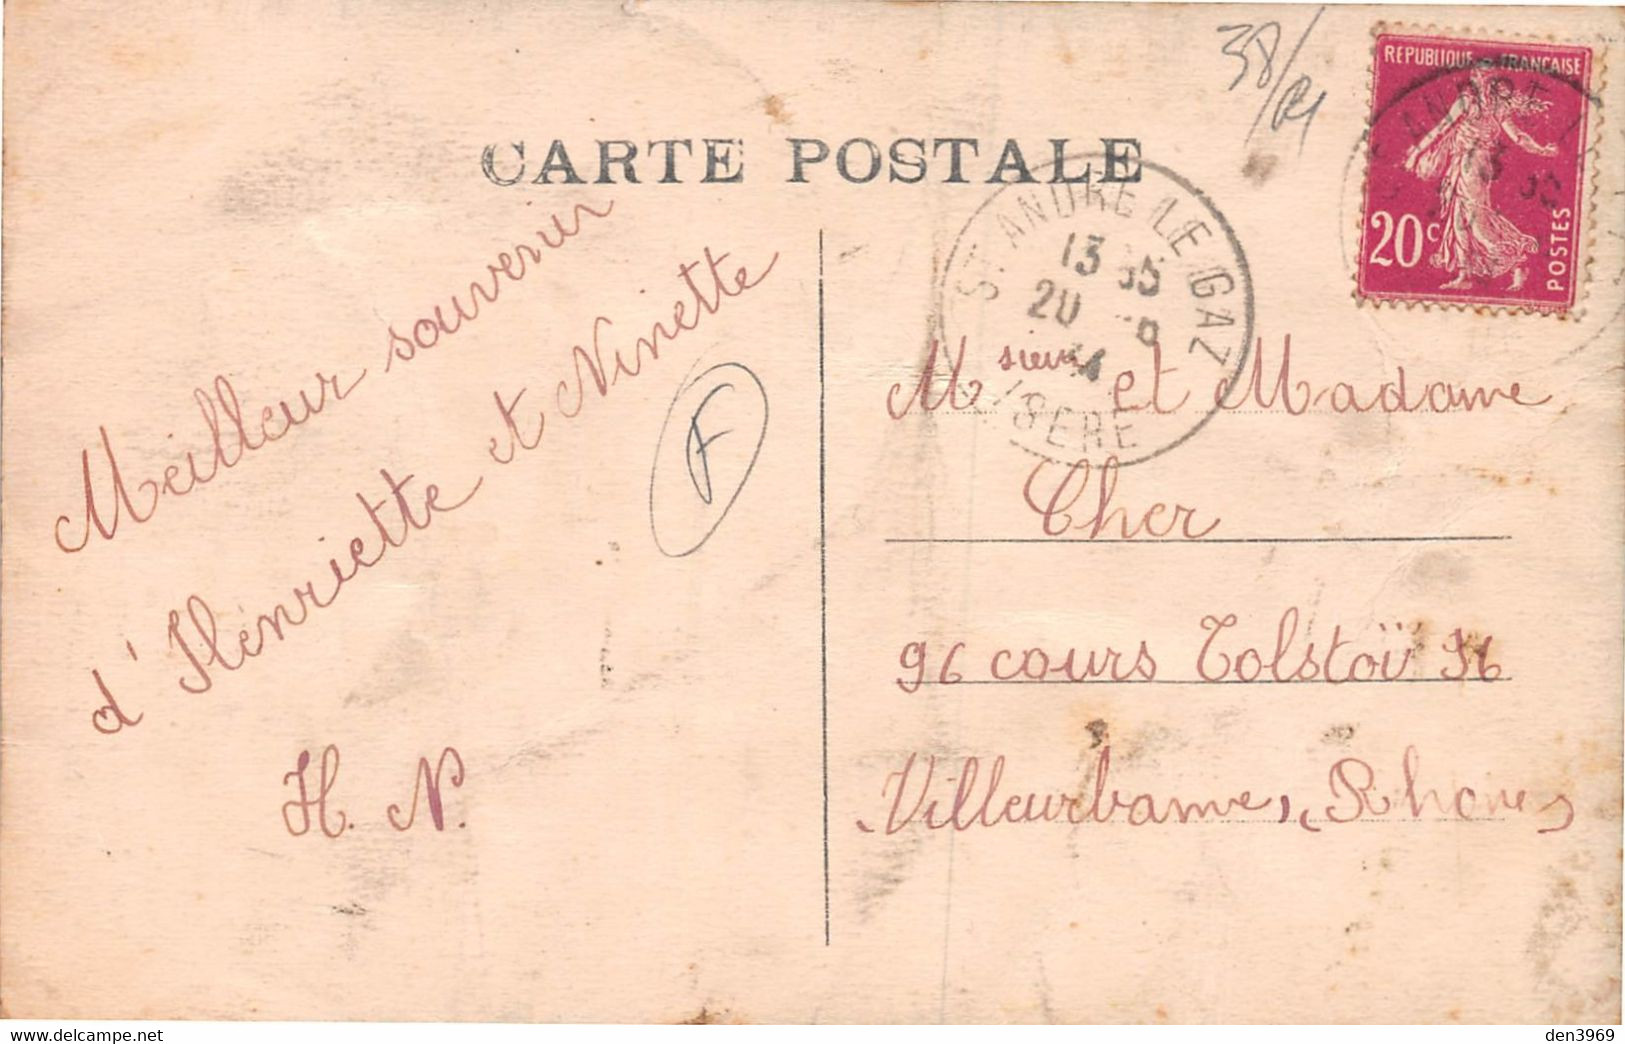 38/
REPUBLIQUE FRANÇAISE
20c
POSTES
CARTE POSTALE
ST ANDRE LE GAZ
13
20
34
ISERE
Meilleur souvenir
d'Henriette et Ninette
H. N.
F
Msieur et Madame
Cher
96 cours Tolstoï 96
Villeurbanne, (Rhone)
https://www.delcampe.net
den3969